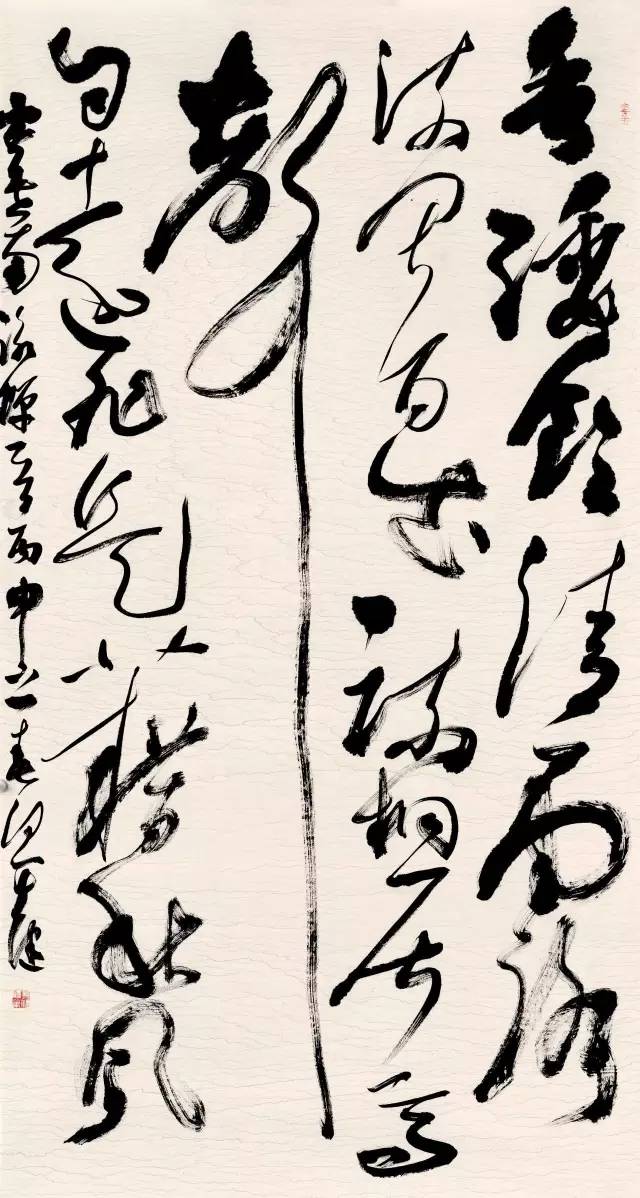 垂緌飲清露
流響出疏桐居高
聲
自遠非是藉秋風
虞世南詠蟬一首丙申之春